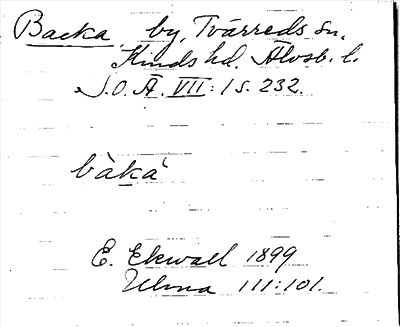 Backa by, Tvärreds sn.
Kinds hd. Älvsb. l.
S.O.Ä. VII:1 s. 232.
bàka´
E. Ekwall 1899
Ulma 111:101.